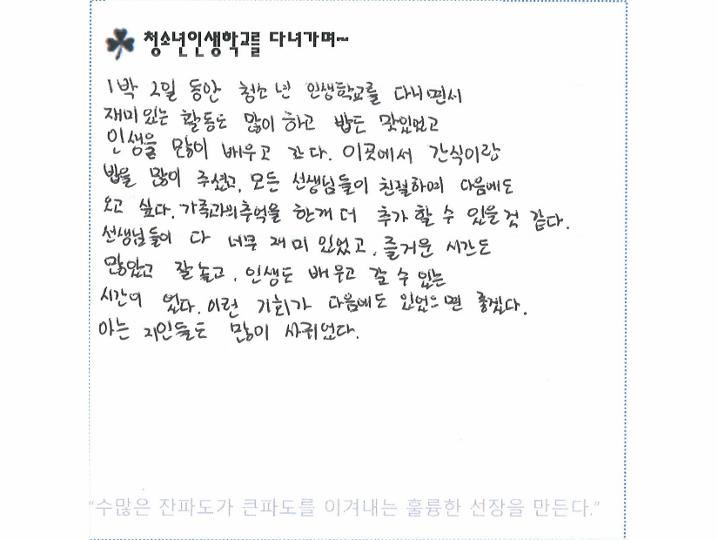 청소년인생학교를 다녀가며~
1박 2일 동안 청소년 인생학교를 다니면서
재미있는 활동도 많이 하고 밥도 맛있었고
인생을 많이 배우고 간다. 이곳에서 간식이랑
밥을 많이 주셨고, 모든 선생님들이 친절하여 다음에도
오고 싶다. 가족과의 추억을 한개 더 추가 할 수 있을것 같다.
선생님들이 다 너무 재미 있었고, 즐거운 시간도
많았고 잘 놀고, 인생도 배우고 갈 수 있는
시간이 었다. 이런 기회가 다음에도 있었으면 좋겠다.
아는 지인들도 많이 사귀었다.
“수많은 잔파도가 큰파도를 이겨내는 훌륭한 선장을 만든다.”